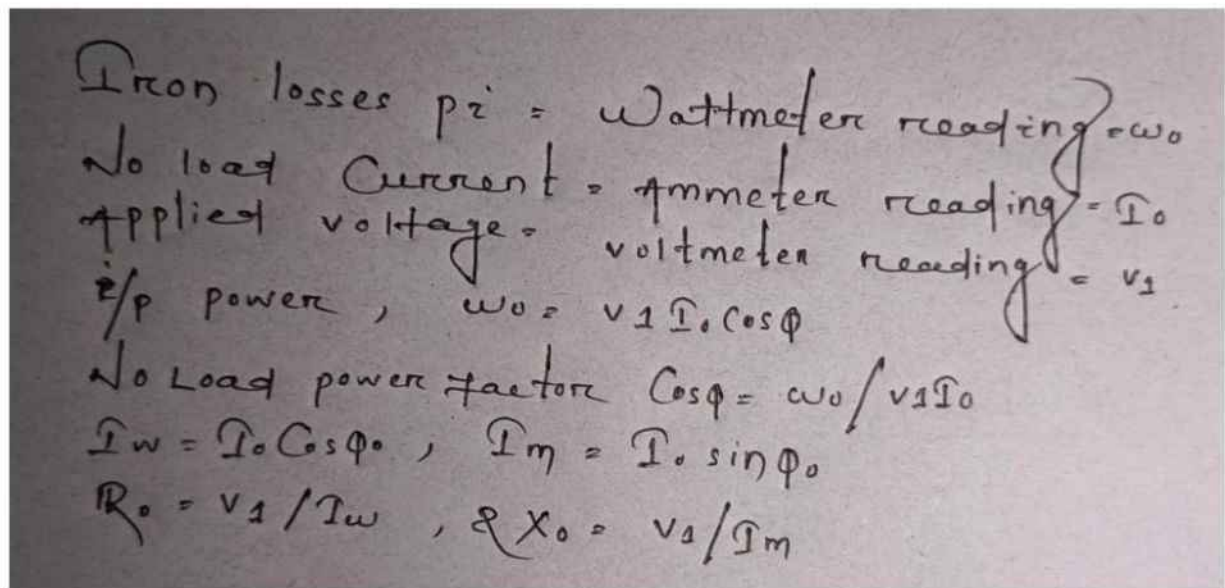 Iron losses pi = Wattmeter reading = wo
No load Current = Ammeter reading = Io
Applied voltage = voltmeter reading = v1
i/p power, wo = v1 Io Cosφ
No Load power factor Cosφ = wo/v1Io
Iw = Io Cosφo, Im = Io sinφo
Ro = v1/Iw, & Xo = v1/Im